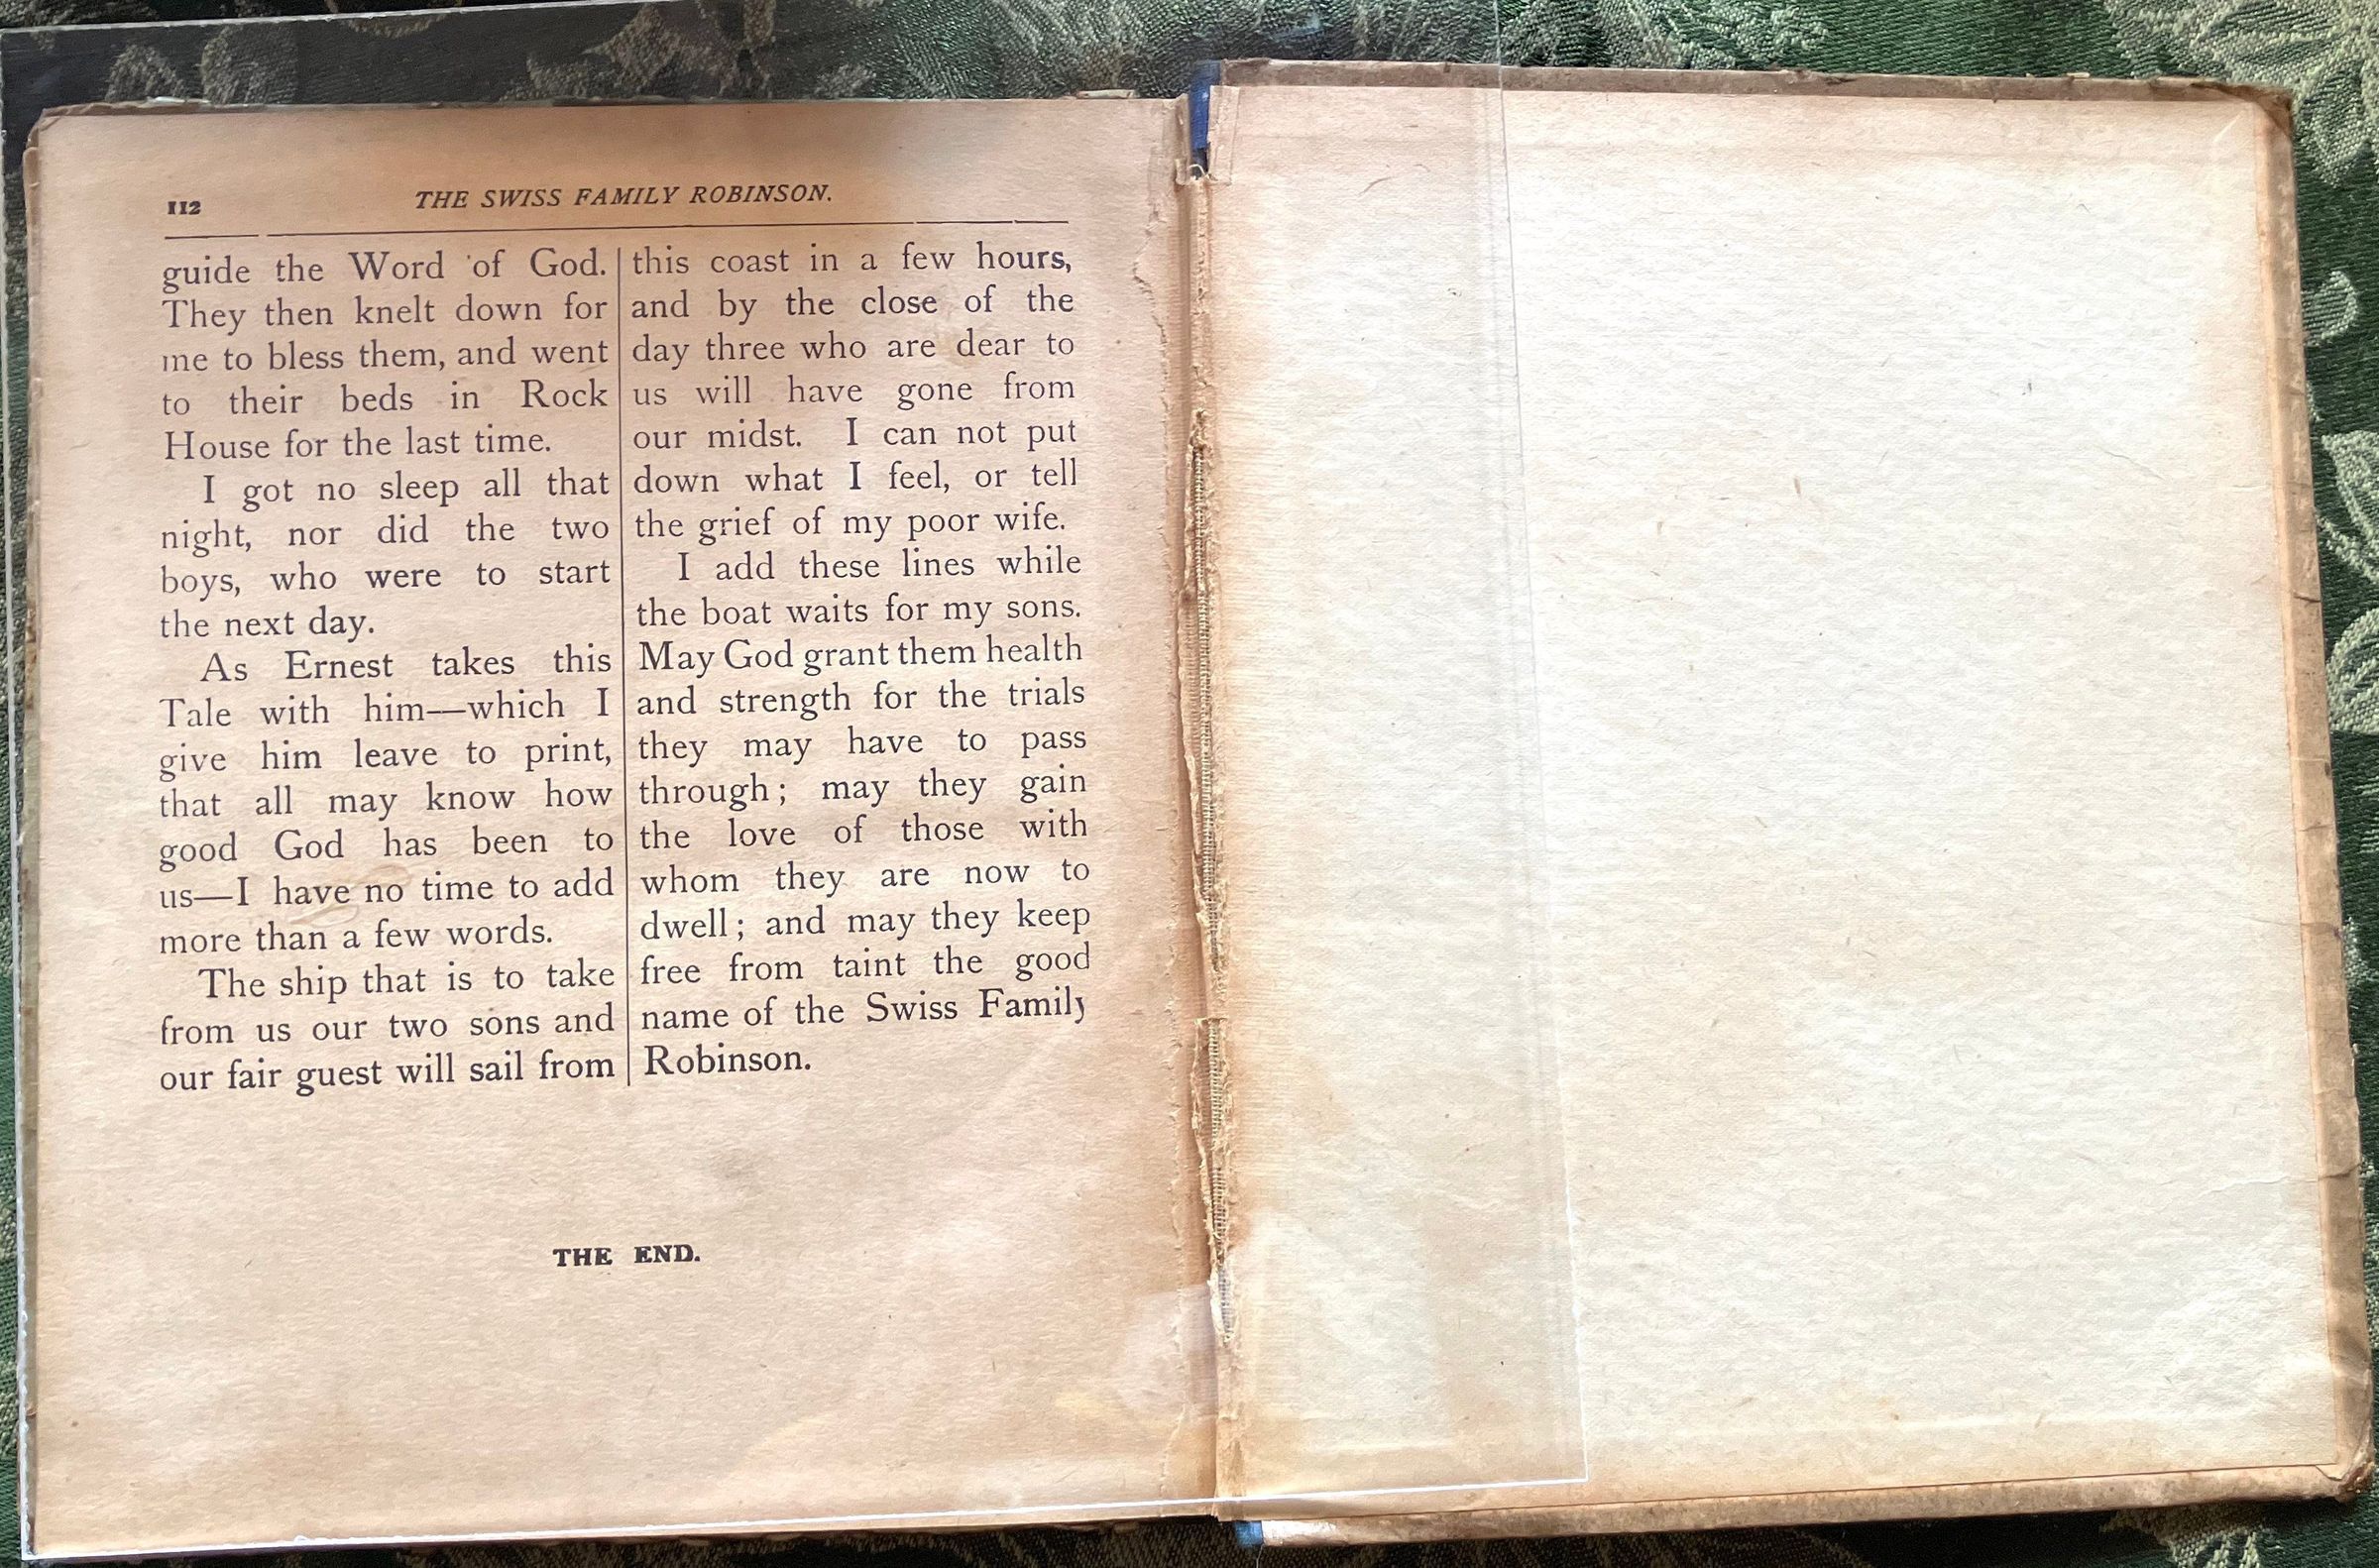 112
THE SWISS FAMILY ROBINSON.
guide the Word of God.
They then knelt down for
me to bless them, and went
to their beds in Rock
House for the last time.
I got no sleep all that
night, nor did the two
boys, who were to start
the next day.
As Ernest takes this
Tale with him—which I
give him leave to print,
that all may know how
good God has been to
us—I have no time to add
more than a few words.
The ship that is to take
from us our two sons and
our fair guest will sail from
this coast in a few hours,
and by the close of the
day three who are dear to
us will have gone from
our midst. I can not put
down what I feel, or tell
the grief of my poor wife.
I add these lines while
the boat waits for my sons.
May God grant them health
and strength for the trials
they may have to pass
through; may they gain
the love of those with
whom they are now to
dwell; and may they keep
free from taint the good
name of the Swiss Family
Robinson.
THE END.